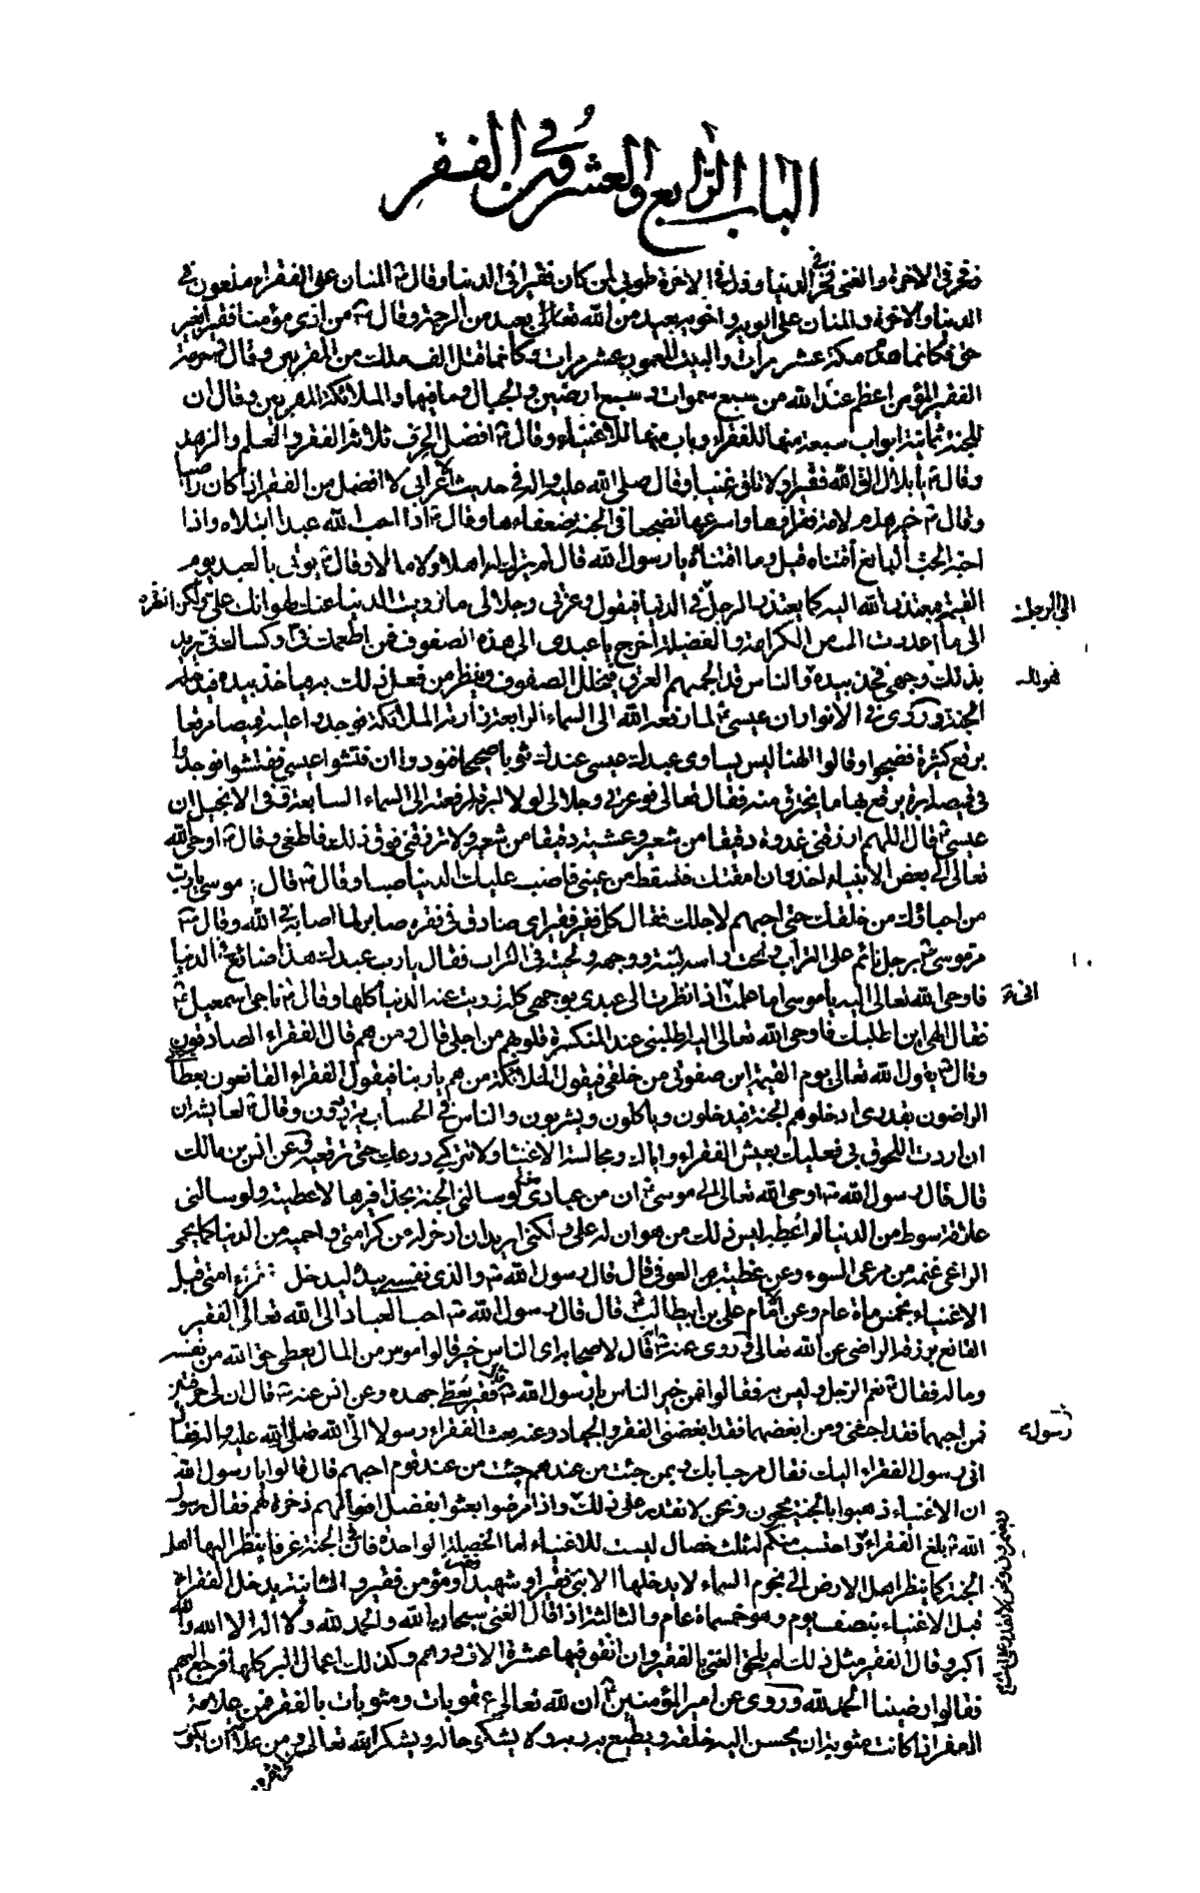 الباب الرابع والعشرون في الفقر
وفخر في الاخرة والغنى فخر في الدنيا وذل في الاخرة طوبى لمن كان فقيرا في الدنيا وقال ۴ المنان على الفقراء ملعون في
الدنيا والاخرة والمنان على ابويه واخويه بعيد من الله تعالى بعيد من الرحمة وقال ۴ من اذى مؤمنا فقيرا بغير
حق فكانما هدم مكة عشر مرات والبيت المعمور عشر مرات وكانما قتل الف ملك من المقربين وقال حرمة
الفقير المؤمن اعظم عند الله من سبع سموات وسبع ارضين والجبال وما فيها والملائكة المقربين وقال ان
للجنة ثمانية ابواب سبعة منها للفقراء وباب منها للاغنياء وقال ۴ افضل الحرف ثلاثة الفقر والعلم والزهد
وقال ۴ يا بلال الق الله فقيرا ولا تلق غنيا وقال صلى الله عليه واله في حديث اعرابي لا افضل من الفقير اذا كان راضيا
وقال ۴ خير هذه لامة فقراؤها واسرعها تضجعا في الجنة ضعفاءها وقال ۴ اذا احب الله عبدا ابتلاه واذا
احبه الحب البالغ افتناه قيل وما افتناه يا رسول الله قال لم يترك له اهلا ولا مالا وقال ۴ يؤتى بالعبد يوم
القيمة فيعتذر الله اليه كما يعتذر الرجل في الدنيا فيقول وعزتي وجلالي ما زويت الدنيا عنك لهوانك علي ولكن انظر
الى ما اعددت لك من الكرامة والفضيلة اخرج يا عبدي الى هذه الصفوف فمن اطعمك في او كساك في يريد
الى الرجل
بذلك وجهي فخذ بيده والناس قد الجمهم العرق فيتخلل الصفوف وينظر من فعل ذلك به وياخذ بيده فيدخله
فهو لك
الجنة وروى في الانوار ان عيسى ۴ لما رفعه الله الى السماء الرابعة زارته الملائكة فوجدوا عليه قميصا مرقعا
برقع كثيرة فضجوا وقالوا الهنا اليس يساوى عبدك عيسى عندك ثوبا صحيحا فنودوا ان فتشوا عيسى ففتشوا فوجدوا
في قميصه ابرة يرقع بها ما يتخرق منه فقال تعالى فوعزتي وجلالي لولا الابرة لرفعته الى السماء السابعة وفي الانجيل ان
عيسى ۴ قال اللهم ارزقني غدوة دقيقا من شعير وعشية دقيقا من شعير ولا ترزقني فوق ذلك فاطغى وقال ۴ اوحى الله
تعالى الى بعض الانبياء احذر ان امقتك فتسقط من عيني فاصب عليك الدنيا صبا وقال ۴ قال موسى يا رب
من احباؤك من خلقك حتى احبهم لاجلك فقال كل فقير فقير اي صادق في فقره صابر لما اصابه في الله وقال ۴
مر موسى ۴ برجل نائم على التراب وتحت راسه لبنة ووجهه ولحيته في التراب فقال يا رب عبدك هذا ضائع في الدنيا
فاوحى الله تعالى اليه يا موسى اما علمت اذا نظرت الى عبدي بوجهي كله زويت عنه الدنيا كلها وقال ۴ ناجى اسمعيل ۴
فقال الهي اين اطلبك فاوحى الله تعالى اليه اطلبني عند المنكسرة قلوبهم من اجلي قال ومن هم قال الفقراء الصادقون
وقال ۴ يقول الله تعالى يوم القيمة اين صفوتي من خلقي فيقول الملائكة من هم يا ربنا فيقول الفقراء القانعون بعطائي
الراضون بقدري ادخلوهم الجنة فيدخلون وياكلون ويشربون والناس في الحساب يترددون وقال ۴ لعايشة
ان اردت اللحوق بي فعليك بعيش الفقراء واياك ومجالسة الاغنياء ولا تتركي درعك حتى ترقعيه وعن انس بن مالك
قال قال رسول الله ۴ اوحى الله تعالى الى موسى ۴ ان من عبادي لو سالني الجنة بحذافيرها لاعطيته ولو سالني
علاقة سوط من الدنيا لم اعطه ليس ذلك من هوان له علي ولكني اريد ان ادخر له من كرامتي واحميه من الدنيا كما يحمى
الراعي غنمه من مرعى السوء وعن عطية العوفي قال قال رسول الله ۴ والذي نفسي بيده ليدخل فقراء امتي قبل
الاغنياء بخمس ماة عام وعن الامام علي بن ابيطالب ۴ قال قال رسول الله ۴ احب العباد الى الله تعالى الفقير
القانع برزقه الراضي عن الله تعالى وروى عنه ۴ قال لاصحابه اي الناس خير قالوا موسر من المال يعطى حق الله من نفسه
وماله فقال ۴ نعم الرجل وليس به فقالوا فمن خير الناس يا رسول الله ۴ قال فقير يعطى جهده وعن انس عنه ۴ قال ان لي حرفتين
فمن احبهما فقد احبني ومن ابغضهما فقد ابغضني الفقر والجهاد وعنه بعث الفقراء رسولا الى الله صلى الله عليه واله فقال
رسوله
اني رسول الفقراء اليك فقال مرحبا بك وبمن جئت من عندهم جئت من عند قوم احبهم قال قالوا يا رسول الله
ان الاغنياء ذهبوا بالجنة يحجون ونحن لا نقدر على ذلك واذا مرضوا بعثوا بفضل اموالهم ذخرة لهم فقال رسول
الله ۴ بلغ الفقراء واحتسب منكم له ثلث خصال ليست للاغنياء اما الخصلة الواحدة فان في الجنة غرفا ينظر اليها اهل
الجنة كما ينظر اهل الارض الى نجوم السماء لا يدخلها الا نبي فقير او شهيد فقير او مؤمن فقير والثانية يدخل الفقراء
قبل الاغنياء بنصف يوم وهو خمسماة عام والثالثة اذا قال الغني سبحان الله والحمد لله ولا اله الا الله والله
اكبر وقال الفقير مثل ذلك لم يلحق الغني بالفقير وان انفق فيها عشرة الاف درهم وكذلك اعمال البر كلها فرجع اليهم
فقالوا رضينا الحمد لله وروى عن امير المؤمنين ۴ ان لله تعالى عقوبات ومثوبات بالفقر فمن علامة
الفقر اذا كانت مثوبة ان يحسن اليه خلقه ويطيع به ربه ولا يشكى حاله ويشكر الله تعالى ومن علامته ان يكون